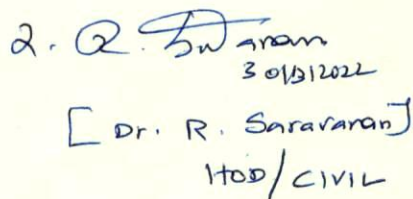 2. R. Saravanan
30/3/2022
[Dr. R. Saravanan]
HOD/CIVIL